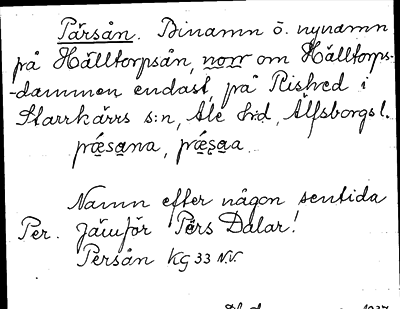 Pärsån. Binamn o. nynamn
på Hälltorpsån, norr om Hälltorps-
-dammen endast, på Rished i
Starrkärrs s:n, Ale h:d, Älfsborgs l.
pǽsa̤na, pǽsa̤a
Namn efter någon sentida
Per. Jämför Pärs Dalar!
Persån KG 33 N.V.